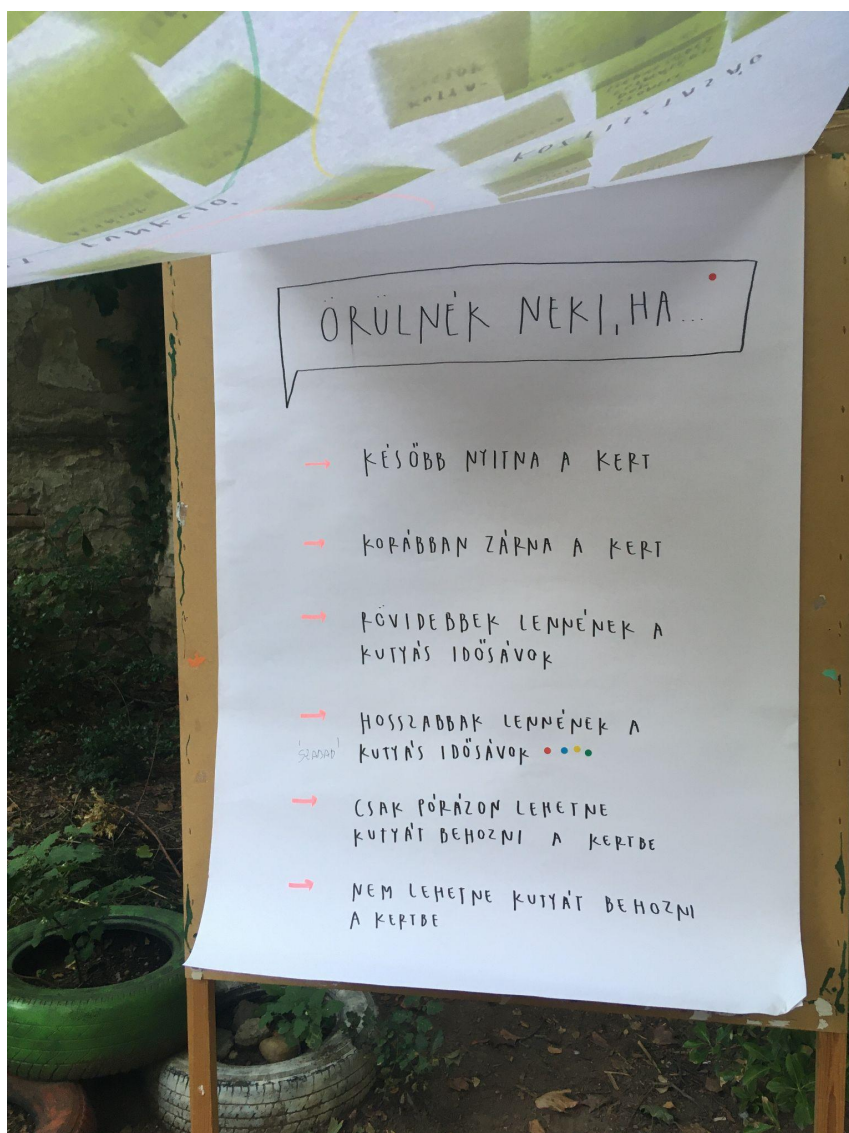 ÖRÜLNÉK NEKI, HA...
KÉSŐBB NYITNA A KERT
KORÁBBAN ZÁRNA A KERT
RÖVIDEBBEK LENNÉNEK A
KUTYÁS IDŐSÁVOK
HOSSZABBAK LENNÉNEK A
'SZABAD' KUTYÁS IDŐSÁVOK
CSAK PÓRÁZON LEHETNE
KUTYÁT BEHOZNI A KERTBE
NEM LEHETNE KUTYÁT BEHOZNI
A KERTBE